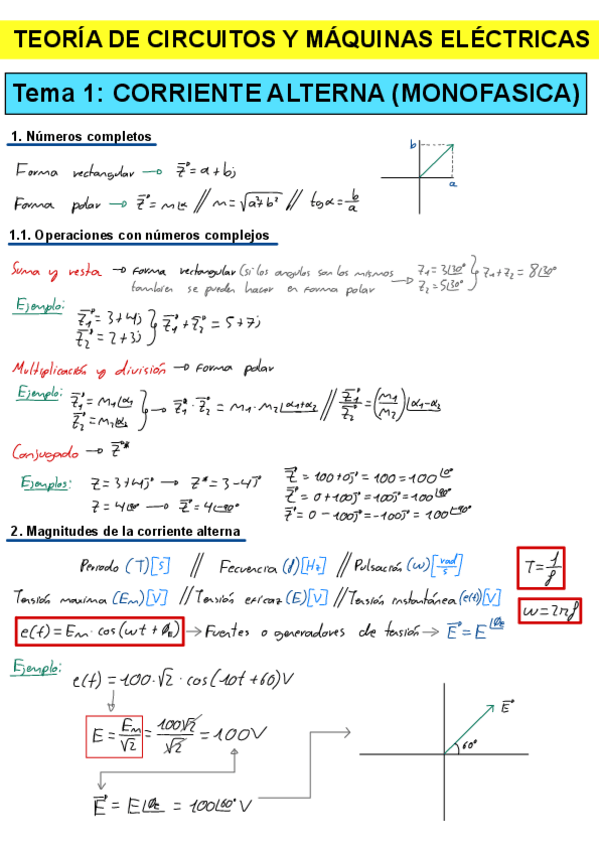 TEORÍA DE CIRCUITOS Y MÁQUINAS ELÉCTRICAS
Tema 1: CORRIENTE ALTERNA (MONOFASICA)
1. Números completos
Forma rectangular → Z⃗ = a + bj
Forma polar → Z⃗ = m∠α // m = √(a² + b²) // tgα = b/a
b
a
1.1. Operaciones con números complejos
Suma y resta → forma rectangular (si los angulos son los mismos
tambien se pueden hacer en forma polar → Z1 = 3∠30° Z2 = 5∠30° } Z1 + Z2 = 8∠30°
Ejemplo: Z⃗1 = 3 + 4j
Z⃗2 = 2 + 3j } Z⃗1 + Z⃗2 = 5 + 7j
Multiplicación y división → forma polar
Ejemplo: Z⃗1 = m1∠α1
Z⃗2 = m2∠α2 } → Z⃗1 · Z⃗2 = m1 · m2 ∠α1+α2 // Z⃗1/Z⃗2 = (m1/m2) ∠α1-α2
Conjugado → Z⃗*
Ejemplos: Z = 3 + 4j → Z* = 3 - 4j
Z⃗ = 100 + 0j = 100 = 100∠0°
Z⃗ = 0 + 100j = 100j = 100∠90°
Z⃗ = 0 - 100j = -100j = 100∠-90°
2. Magnitudes de la corriente alterna
Periodo (T)[s] // Fecuencia (f)[Hz] // Pulsación (ω)[rad/s]
T = 1/f
Tensión maxima (Em)[V] // Tensión eficaz (E)[V] // Tensión instantánea (e(t))[V]
ω = 2πf
e(t) = Em · cos(ωt + φE) → Fuentes o generadores de tensión → E⃗ = E∠φE
Ejemplo: e(t) = 100·√2 · cos(10t + 60)V
E = Em/√2 = 100√2/√2 = 100V
E⃗ = E∠φE = 100∠60° V
E⃗
60°